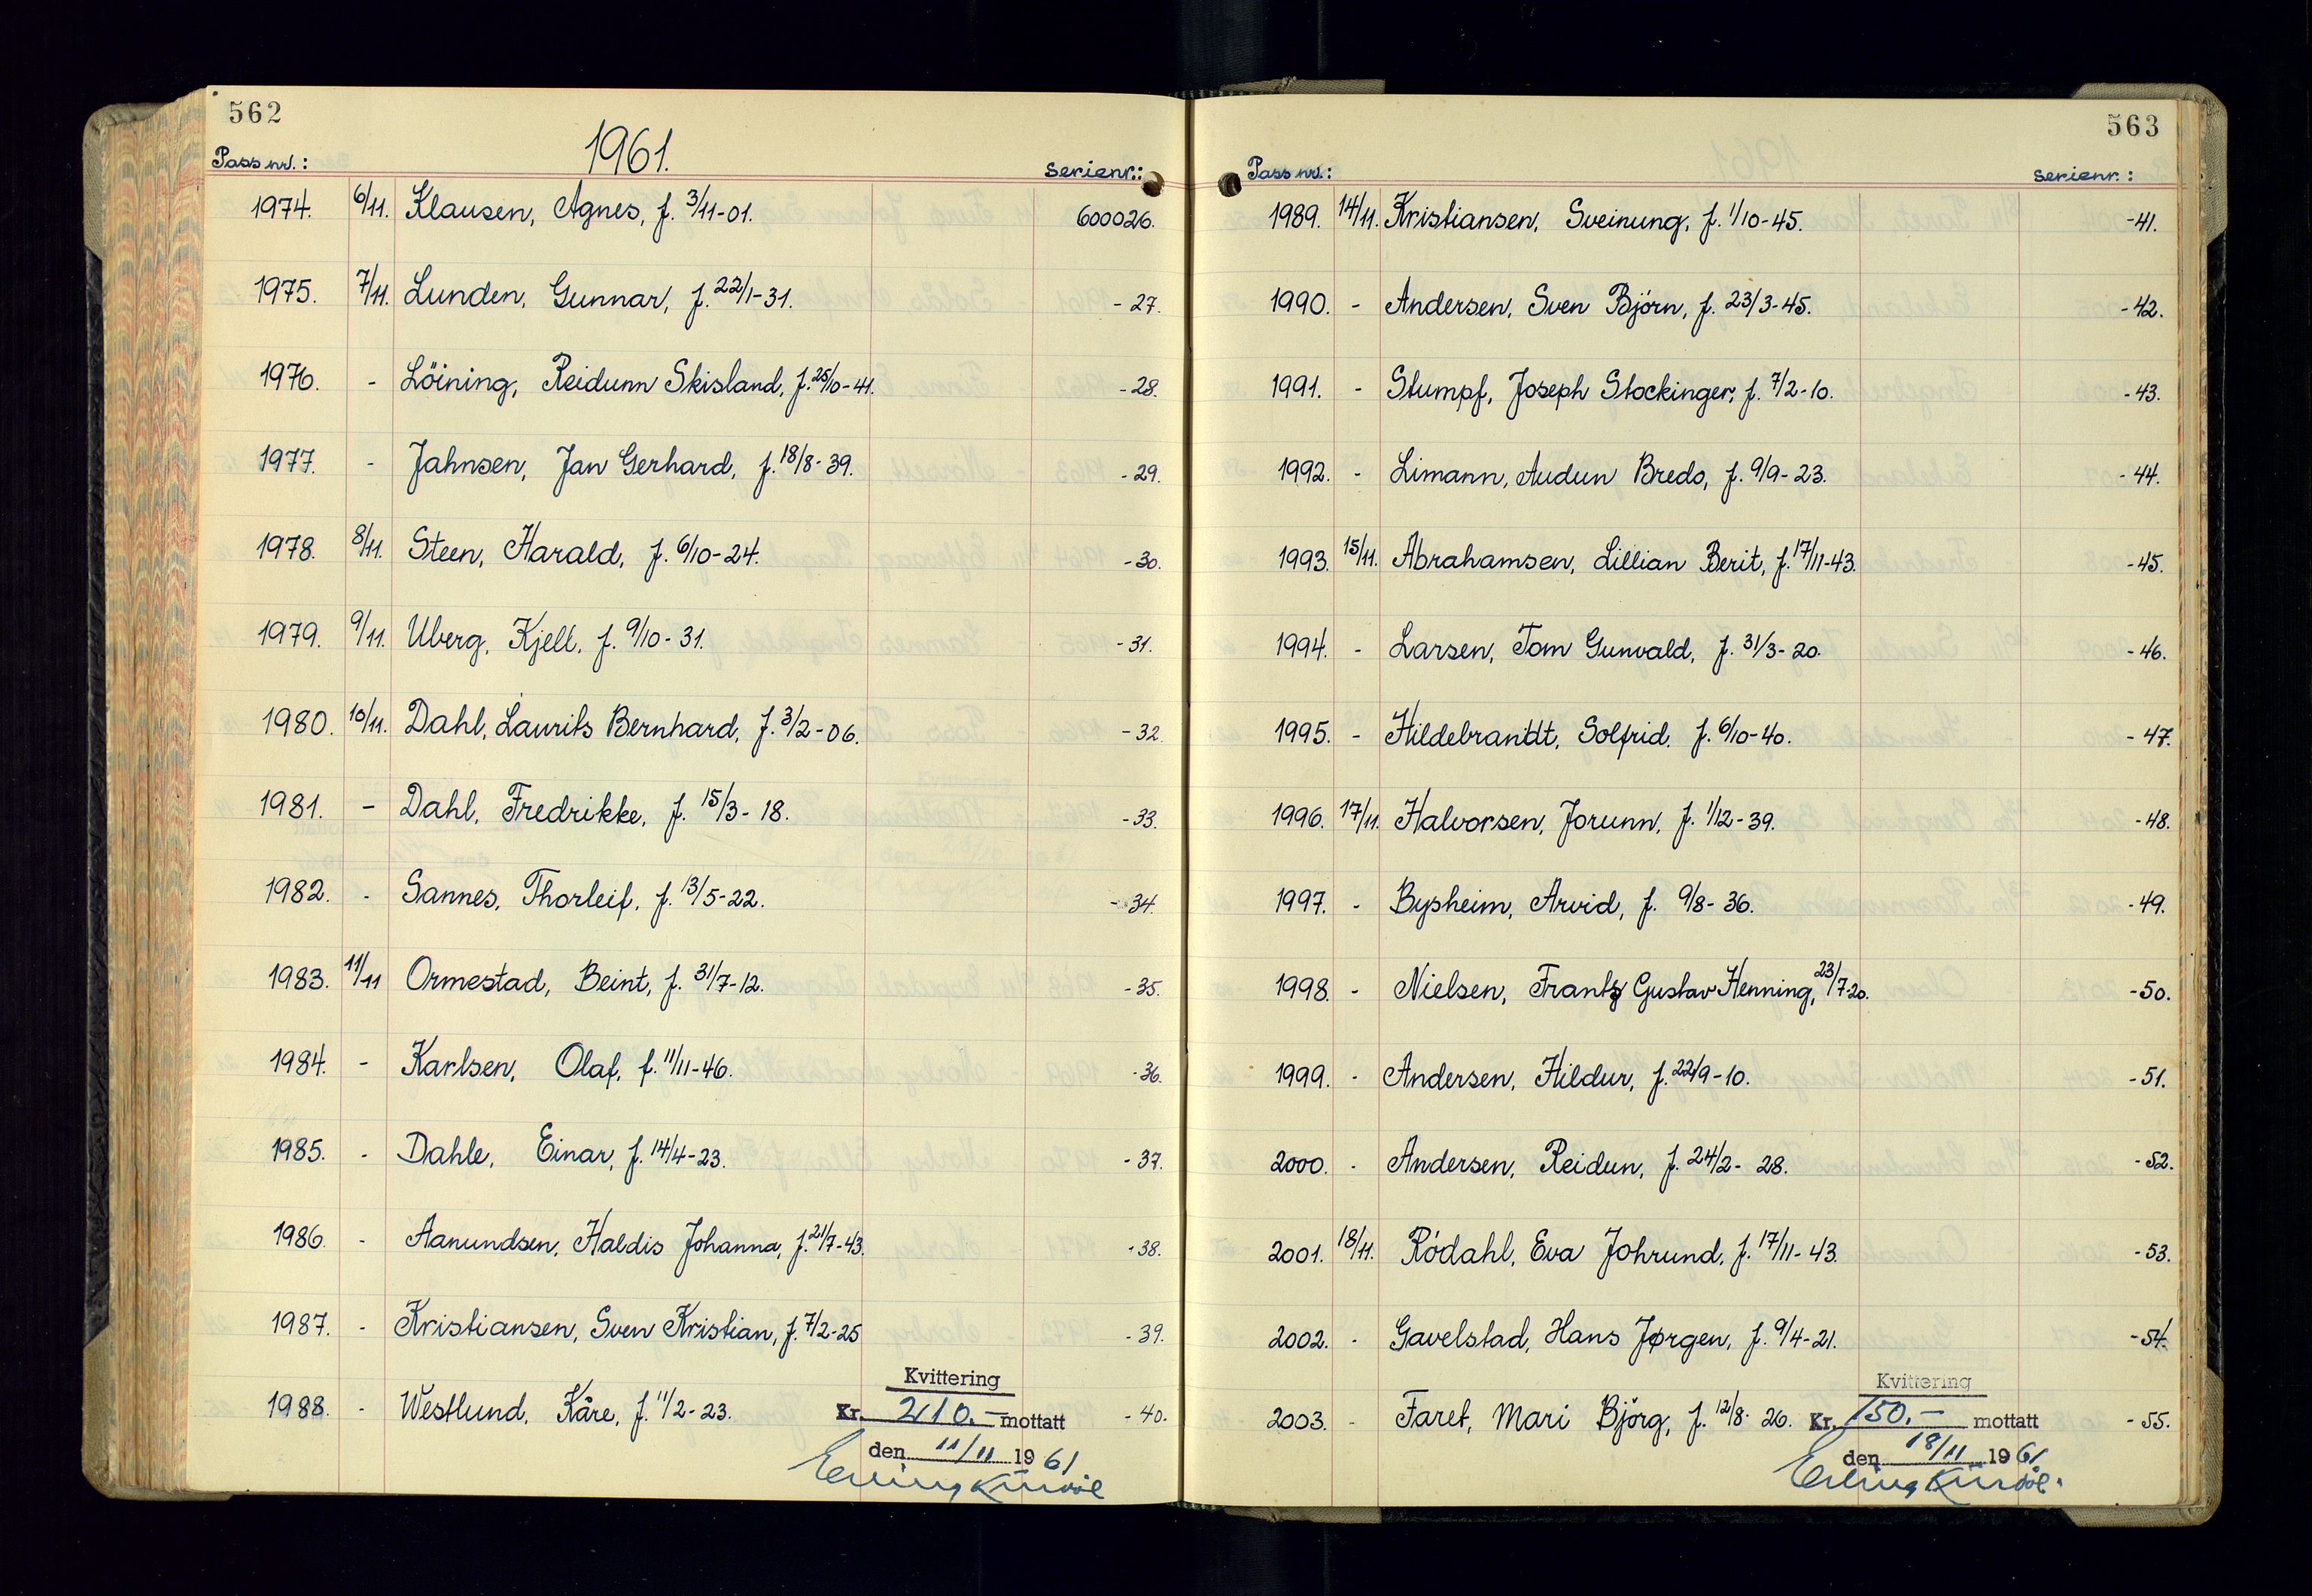 562
1961.
Pass nr.: Serienr.:
1974. 6/11. Klausen, Agnes, f. 3/11-01. 600026.
1975. 7/11. Lunden, Gunnar, f. 22/1-31. -27.
1976. - Löining, Reidunn Skisland, f. 25/10-41. -28.
1977. - Jahnsen, Jan Gerhard, f. 18/8-39. -29.
1978. 8/11. Steen, Harald, f. 6/10-24. -30.
1979. 9/11. Uberg, Kjell, f. 9/10-31. -31.
1980. 10/11. Dahl, Laurits Bernhard, f. 3/2-06. -32.
1981. - Dahl, Fredrikke, f. 15/3-18. -33.
1982. - Sannes, Thorleif, f. 13/5-22. -34.
1983. 11/11 Ormestad, Beint, f. 31/7-12. -35.
1984. - Karlsen, Olaf, f. 11/11-46. -36.
1985. - Dahle, Einar, f. 14/4-23. -37.
1986. - Aanundsen, Haldis Johanna, f. 21/7-43. -38.
1987. - Kristiansen, Sven Kristian, f. 7/2-25 -39.
1988. - Westlund, Kåre, f. 11/2-23. -40.
Kvittering
Kr. 210.- mottatt
den 11/11 1961
563
Pass nr.: Serienr.:
1989. 14/11. Kristiansen, Sveinung, f. 1/10-45. -41.
1990. - Andersen, Sven Björn, f. 23/3-45. -42.
1991. - Stumpf, Joseph Stockinger, f. 7/2-10. -43.
1992. - Limann, Audun Bredo, f. 9/9-23. -44.
1993. 15/11. Abrahamsen, Lillian Berit, f. 17/11-43. -45.
1994. - Larsen, Tom Gunvald, f. 31/3-20. -46.
1995. - Hildebrandt, Solfrid, f. 6/10-40. -47.
1996. 17/11. Halvorsen, Jorunn, f. 1/12-39. -48.
1997. - Bysheim, Arvid, f. 9/8-36. -49.
1998. - Nielsen, Frantz Gustav Henning, 23/7-20. -50.
1999. - Andersen, Hildur, f. 22/9-10. -51.
2000. - Andersen, Reidun, f. 24/2-28. -52.
2001. 18/11. Rödahl, Eva Johrund, f. 17/11-43. -53.
2002. - Gavelstad, Hans Jørgen, f. 9/4-21. -54.
2003. - Faret, Mari Björg, f. 12/8-26. -55.
Kvittering
Kr. 150.- mottatt
den 18/11 1961